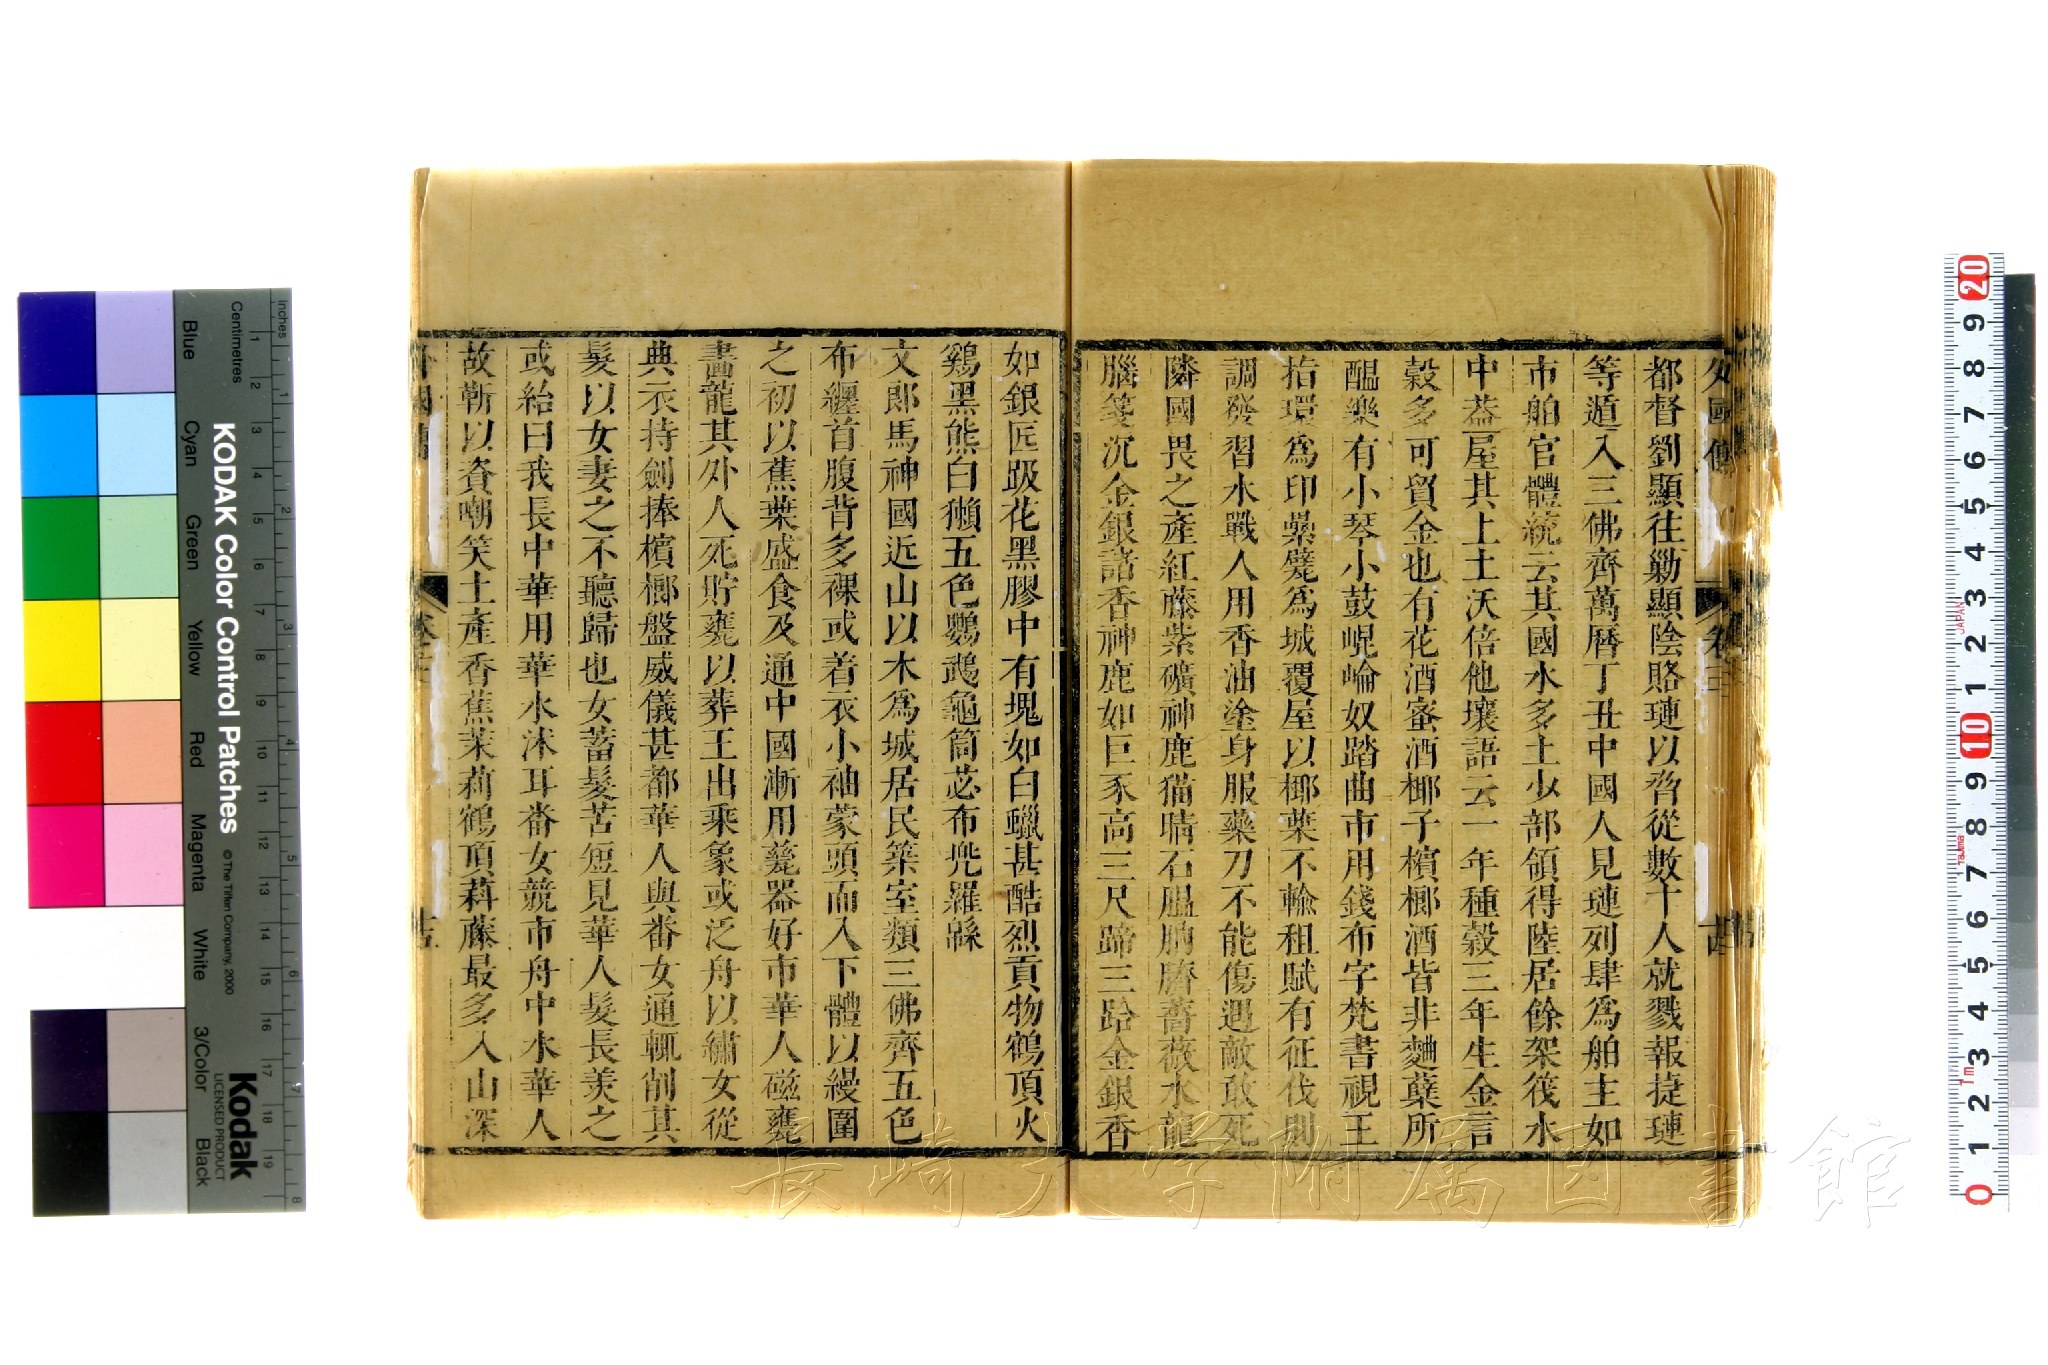 外國傳
卷三
都督劉顯往勦顯陰賂璉以砦從數十人就戮報捷璉
等遁入三佛齊萬曆丁丑中國人見璉列肆爲舶主如
市舶官體統云其國水多土少部領得陸居餘架筏水
中葢屋其上土沃倍他壤語云一年種穀三年生金言
穀多可貿金也有花酒蜜酒椰子檳榔酒皆非麯蘖所
醖樂有小琴小鼓崐崘奴踏曲市用錢布字梵書視王
指環爲印壘甓爲城覆屋以椰葉不輸租賦有征伐則
調發習水戰人用香油塗身服藥刀不能傷遇敵敢死
隣國畏之產紅藤紫礦神鹿猫睛石膃肭臍薔薇水龍
腦箋沉金銀諸香神鹿如巨豕高三尺蹄三跲金銀香
如銀匠趿花黑膠中有塊如白蠟甚酷烈貢物鶴頂火
鷄黑熊白獺五色鸚鵡龜筒苾布兠羅綿
文郎馬神國近山以木爲城居民築室類三佛齊五色
布纏首腹背多裸或着衣小袖蒙頭而入下體以縵圍
之初以蕉葉盛食及通中國漸用甆器好市華人磁甕
畵龍其外人死貯甕以葬王出乘象或泛舟以繡女從
典衣持劍捧檳榔盤威儀甚都華人與番女通輒削其
髮以女妻之不聽歸也女蓄髮苦短見華人髮長美之
或紿曰我長中華用華水沐耳番女競市舟中水華人
故靳以資嘲笑土產香蕉茉莉鶴頂莿藤最多入山深
KODAK Color Control Patches
© The Tiffen Company, 2000
Kodak
LICENSED PRODUCT
Centimetres
inches
Blue
Cyan
Green
Yellow
Red
Magenta
White
3/Color
Black
長崎大学附属図書館
JAPAN
Tajima